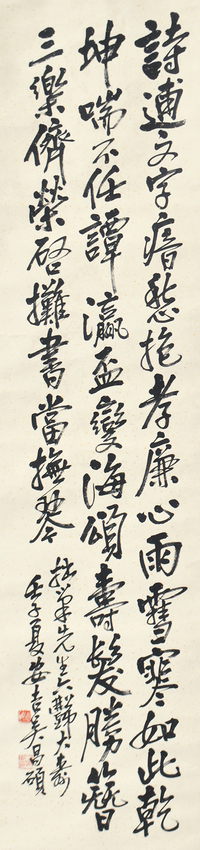 詩逋文字瘖愁抱孝廉心雨雪寒如此乾
坤喘不任譚瀛盃變海頌壽髮勝簪
三樂儕榮啓攤書當撫琴
先生六大壽
壬子夏安吉吳昌碩